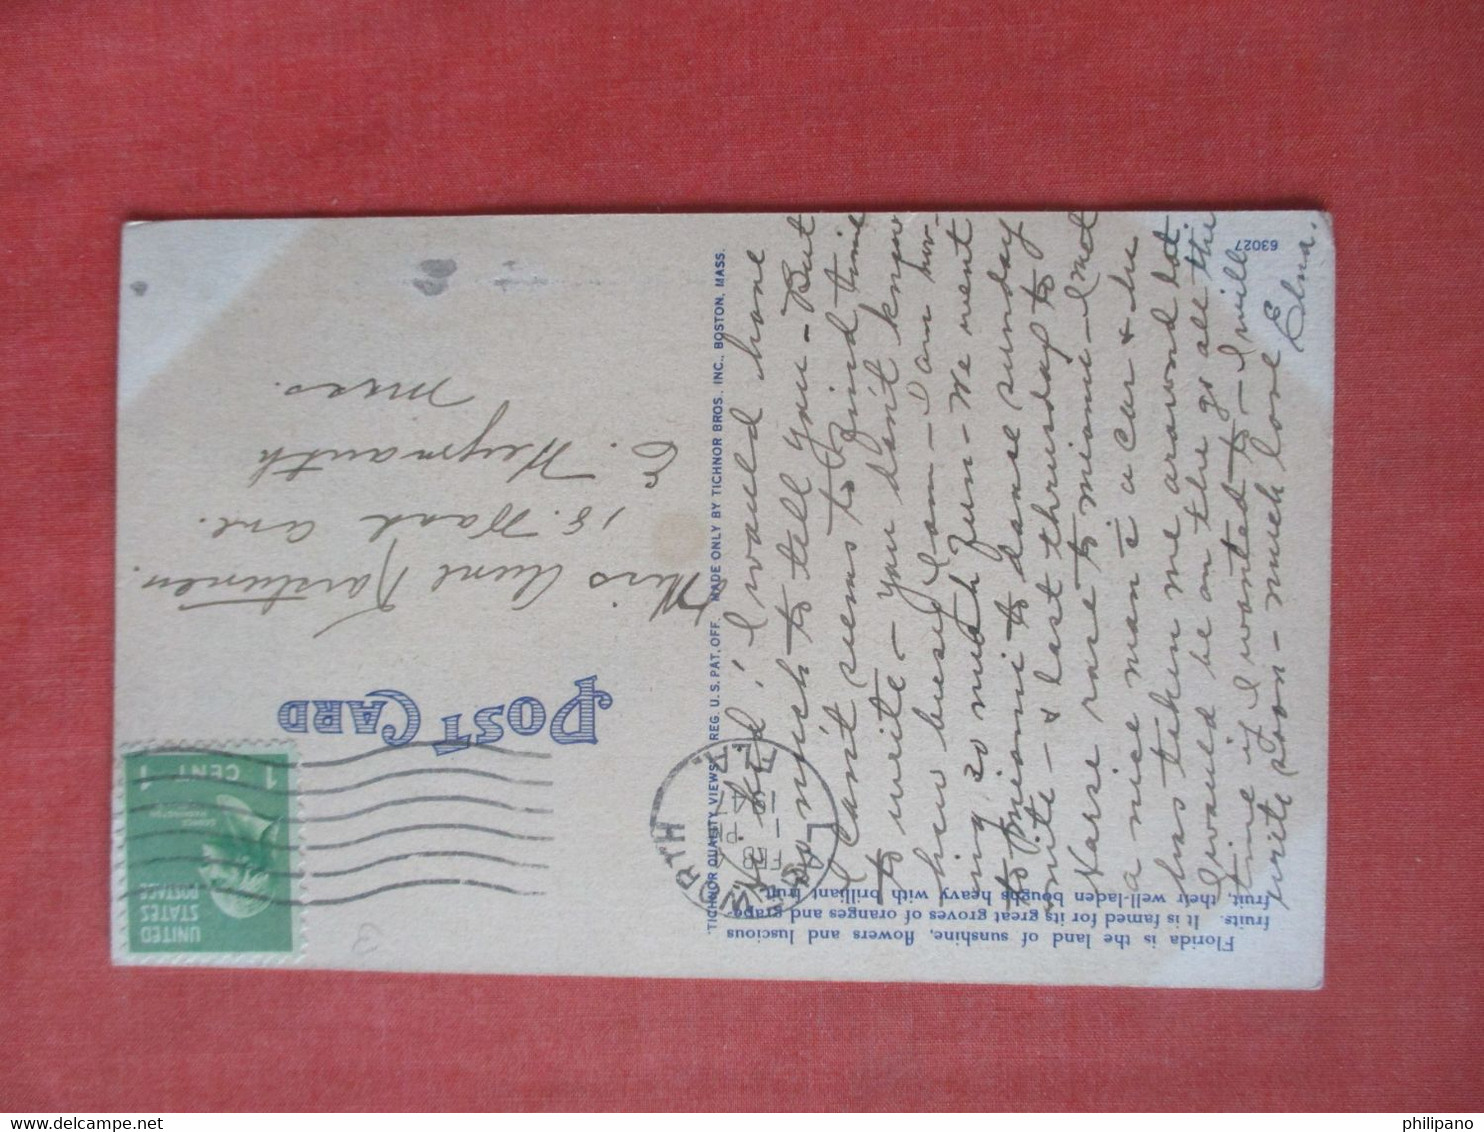 Florida is the land of sunshine, flowers and luscious
fruits. It is famed for its great groves of oranges and grape-
fruit, their well-laden boughs heavy with brilliant fruit.
63027
TICHNOR QUALITY VIEWS, REG. U. S. PAT. OFF. MADE ONLY BY TICHNOR BROS. INC., BOSTON, MASS.
POST CARD
UNITED
STATES
POSTAGE
1 CENT 1
WORTH
FEB
1
PM
FLA.
kid; I would have
so much to tell you - But
I cant seems to find time
to write - you don't know
how busy I am - I am hav-
ing so much fun - We went
to Miami to dance sunday
nite - & last thrusday to
Harse rase to Miami - I met
a nice man c̄ a car & he
has taken me around lot.
I would be on the go all the
time if I wanted to - I will
write soon - much love
Elna.
Miss Aune
18. Wash ave.
E. Weymouth
Mass.
3
philipano